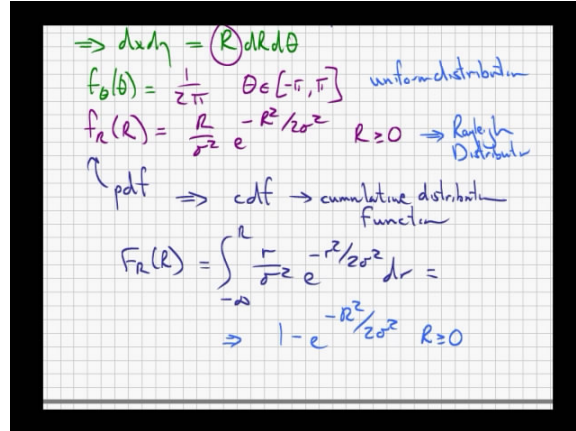 ⇒ dxdy = R dRdθ
f_θ(θ) = 1/2π θ∈[-π, π] uniform distribution
f_R(R) = R/σ² e^(-R²/2σ²) R≥0 → Rayleigh Distribution
pdf ⇒ cdf → cumulative distribution function
F_R(R) = ∫_{-∞}^{R} r/σ² e^(-r²/2σ²) dr =
⇒ 1 - e^(-R²/2σ²) R≥0